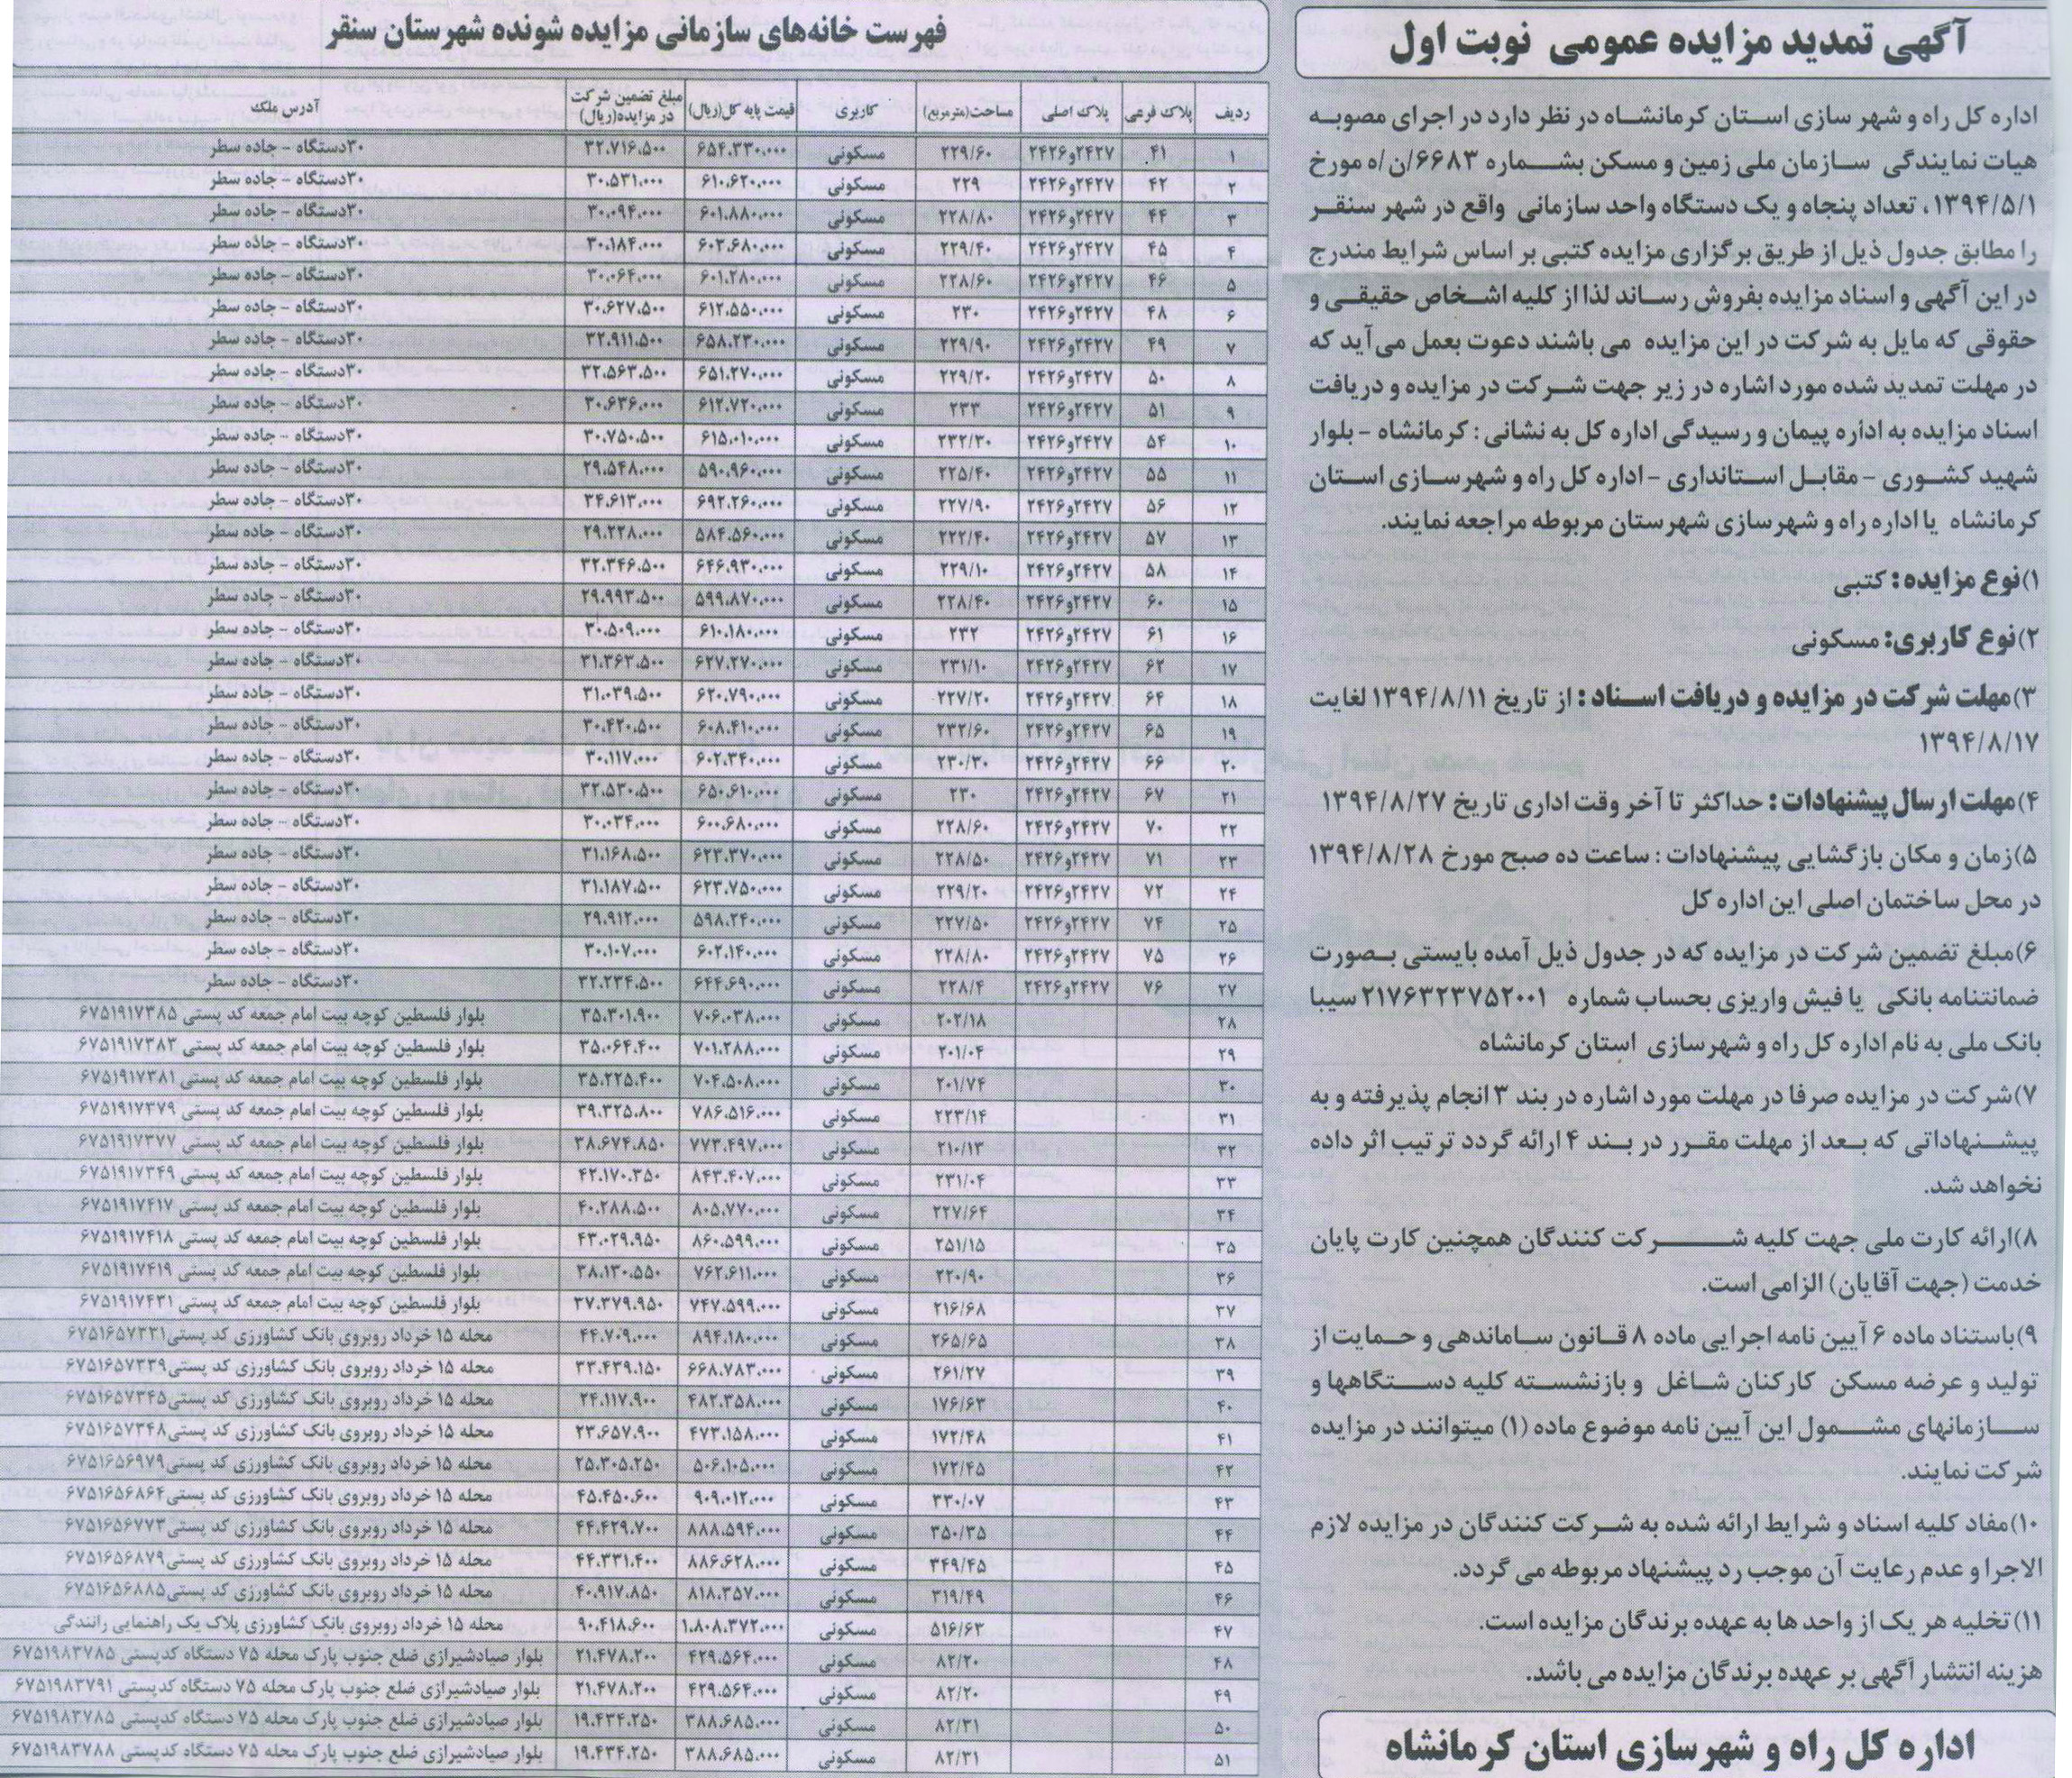 آگهی تمدید مزایده عمومی نوبت اول
اداره کل راه و شهر سازی استان کرمانشاه در نظر دارد در اجرای مصوبه
هیات نمایندگی سازمان ملی زمین و مسکن بشماره ۶۶۸۳/ن/ه مورخ
۱۳۹۴/۵/۱، تعداد پنجاه و یک دستگاه واحد سازمانی واقع در شهر سنقر
را مطابق جدول ذیل از طریق برگزاری مزایده کتبی بر اساس شرایط مندرج
در این آگهی و اسناد مزایده بفروش رساند لذا از کلیه اشخاص حقیقی و
حقوقی که مایل به شرکت در این مزایده می باشند دعوت بعمل می‌آید که
در مهلت تمدید شده مورد اشاره در زیر جهت شرکت در مزایده و دریافت
اسناد مزایده به اداره پیمان و رسیدگی اداره کل به نشانی : کرمانشاه – بلوار
شهید کشوری – مقابل استانداری – اداره کل راه و شهرسازی استان
کرمانشاه یا اداره راه و شهرسازی شهرستان مربوطه مراجعه نمایند.
۱)نوع مزایده: کتبی
۲)نوع کاربری: مسکونی
۳)مهلت شرکت در مزایده و دریافت اسناد : از تاریخ ۱۳۹۴/۸/۱۱ لغایت
۱۳۹۴/۸/۱۷
۴)مهلت ارسال پیشنهادات : حداکثر تا آخر وقت اداری تاریخ ۱۳۹۴/۸/۲۷
۵)زمان و مکان بازگشایی پیشنهادات : ساعت ده صبح مورخ ۱۳۹۴/۸/۲۸
در محل ساختمان اصلی این اداره کل
۶)مبلغ تضمین شرکت در مزایده که در جدول ذیل آمده بایستی بصورت
ضمانتنامه بانکی یا فیش واریزی بحساب شماره ۲۱۷۶۳۲۳۷۵۲۰۰۱ سیبا
بانک ملی به نام اداره کل راه و شهرسازی استان کرمانشاه
۷)شرکت در مزایده صرفا در مهلت مورد اشاره در بند ۳ انجام پذیرفته و به
پیشنهاداتی که بعد از مهلت مقرر در بند ۴ ارائه گردد ترتیب اثر داده
نخواهد شد.
۸)ارائه کارت ملی جهت کلیه شرکت کنندگان همچنین کارت پایان
خدمت (جهت آقایان) الزامی است.
۹)باستناد ماده ۶ آیین نامه اجرایی ماده ۸ قانون ساماندهی و حمایت از
تولید و عرضه مسکن کارکنان شاغل و بازنشسته کلیه دستگاهها و
سازمانهای مشمول این آیین نامه موضوع ماده (۱) میتوانند در مزایده
شرکت نمایند.
۱۰)مفاد کلیه اسناد و شرایط ارائه شده به شرکت کنندگان در مزایده لازم
الاجرا و عدم رعایت آن موجب رد پیشنهاد مربوطه می گردد.
۱۱)تخلیه هر یک از واحد ها به عهده برندگان مزایده است.
هزینه انتشار آگهی بر عهده برندگان مزایده می باشد.
اداره کل راه و شهرسازی استان کرمانشاه
فهرست خانه‌های سازمانی مزایده شونده شهرستان سنقر
ردیف پلاک فرعی پلاک اصلی مساحت(مترمربع) کاربری قیمت پایه کل(ریال) مبلغ تضمین شرکت در مزایده(ریال) آدرس ملک
۱ ۴۱ ۲۴۲۷و۲۴۲۶ ۲۲۹/۶۰ مسکونی ۶۵۴،۳۳۰،۰۰۰ ۳۲،۷۱۶،۵۰۰ ۳۰دستگاه – جاده سطر
۲ ۴۲ ۲۴۲۷و۲۴۲۶ ۲۲۹ مسکونی ۶۱۰،۶۲۰،۰۰۰ ۳۰،۵۳۱،۰۰۰ ۳۰دستگاه – جاده سطر
۳ ۴۴ ۲۴۲۷و۲۴۲۶ ۲۲۸/۸۰ مسکونی ۶۰۱،۸۸۰،۰۰۰ ۳۰،۰۹۴،۰۰۰ ۳۰دستگاه – جاده سطر
۴ ۴۵ ۲۴۲۷و۲۴۲۶ ۲۲۹/۴۰ مسکونی ۶۰۳،۶۸۰،۰۰۰ ۳۰،۱۸۴،۰۰۰ ۳۰دستگاه – جاده سطر
۵ ۴۶ ۲۴۲۷و۲۴۲۶ ۲۲۸/۶۰ مسکونی ۶۰۱،۲۸۰،۰۰۰ ۳۰،۰۶۴،۰۰۰ ۳۰دستگاه – جاده سطر
۶ ۴۸ ۲۴۲۷و۲۴۲۶ ۲۳۰ مسکونی ۶۱۲،۵۵۰،۰۰۰ ۳۰،۶۲۷،۵۰۰ ۳۰دستگاه – جاده سطر
۷ ۴۹ ۲۴۲۷و۲۴۲۶ ۲۲۹/۹۰ مسکونی ۶۵۸،۲۳۰،۰۰۰ ۳۲،۹۱۱،۵۰۰ ۳۰دستگاه – جاده سطر
۸ ۵۰ ۲۴۲۷و۲۴۲۶ ۲۲۹/۲۰ مسکونی ۶۵۱،۲۷۰،۰۰۰ ۳۲،۵۶۳،۵۰۰ ۳۰دستگاه – جاده سطر
۹ ۵۱ ۲۴۲۷و۲۴۲۶ ۲۳۳ مسکونی ۶۱۲،۷۲۰،۰۰۰ ۳۰،۶۳۶،۰۰۰ ۳۰دستگاه – جاده سطر
۱۰ ۵۴ ۲۴۲۷و۲۴۲۶ ۲۳۲/۳۰ مسکونی ۶۱۵،۰۱۰،۰۰۰ ۳۰،۷۵۰،۵۰۰ ۳۰دستگاه – جاده سطر
۱۱ ۵۵ ۲۴۲۷و۲۴۲۶ ۲۲۵/۴۰ مسکونی ۵۹۰،۹۶۰،۰۰۰ ۲۹،۵۴۸،۰۰۰ ۳۰دستگاه – جاده سطر
۱۲ ۵۶ ۲۴۲۷و۲۴۲۶ ۲۲۷/۹۰ مسکونی ۶۹۲،۲۶۰،۰۰۰ ۳۴،۶۱۳،۰۰۰ ۳۰دستگاه – جاده سطر
۱۳ ۵۷ ۲۴۲۷و۲۴۲۶ ۲۲۲/۴۰ مسکونی ۵۸۴،۵۶۰،۰۰۰ ۲۹،۲۲۸،۰۰۰ ۳۰دستگاه – جاده سطر
۱۴ ۵۸ ۲۴۲۷و۲۴۲۶ ۲۲۹/۱۰ مسکونی ۶۴۶،۹۳۰،۰۰۰ ۳۲،۳۴۶،۵۰۰ ۳۰دستگاه – جاده سطر
۱۵ ۶۰ ۲۴۲۷و۲۴۲۶ ۲۲۸/۴۰ مسکونی ۵۹۹،۸۷۰،۰۰۰ ۲۹،۹۹۳،۵۰۰ ۳۰دستگاه – جاده سطر
۱۶ ۶۱ ۲۴۲۷و۲۴۲۶ ۲۳۲ مسکونی ۶۱۰،۱۸۰،۰۰۰ ۳۰،۵۰۹،۰۰۰ ۳۰دستگاه – جاده سطر
۱۷ ۶۲ ۲۴۲۷و۲۴۲۶ ۲۳۱/۱۰ مسکونی ۶۲۷،۲۷۰،۰۰۰ ۳۱،۳۶۳،۵۰۰ ۳۰دستگاه – جاده سطر
۱۸ ۶۴ ۲۴۲۷و۲۴۲۶ ۲۲۷/۲۰ مسکونی ۶۲۰،۷۹۰،۰۰۰ ۳۱،۰۳۹،۵۰۰ ۳۰دستگاه – جاده سطر
۱۹ ۶۵ ۲۴۲۷و۲۴۲۶ ۲۳۲/۶۰ مسکونی ۶۰۸،۴۱۰،۰۰۰ ۳۰،۴۲۰،۵۰۰ ۳۰دستگاه – جاده سطر
۲۰ ۶۶ ۲۴۲۷و۲۴۲۶ ۲۳۰/۳۰ مسکونی ۶۰۲،۳۴۰،۰۰۰ ۳۰،۱۱۷،۰۰۰ ۳۰دستگاه – جاده سطر
۲۱ ۶۷ ۲۴۲۷و۲۴۲۶ ۲۳۰ مسکونی ۶۵۰،۶۱۰،۰۰۰ ۳۲،۵۳۰،۵۰۰ ۳۰دستگاه – جاده سطر
۲۲ ۷۰ ۲۴۲۷و۲۴۲۶ ۲۲۸/۶۰ مسکونی ۶۰۰،۶۸۰،۰۰۰ ۳۰،۰۳۴،۰۰۰ ۳۰دستگاه – جاده سطر
۲۳ ۷۱ ۲۴۲۷و۲۴۲۶ ۲۲۸/۵۰ مسکونی ۶۲۳،۳۷۰،۰۰۰ ۳۱،۱۶۸،۵۰۰ ۳۰دستگاه – جاده سطر
۲۴ ۷۲ ۲۴۲۷و۲۴۲۶ ۲۲۹/۲۰ مسکونی ۶۲۳،۷۵۰،۰۰۰ ۳۱،۱۸۷،۵۰۰ ۳۰دستگاه – جاده سطر
۲۵ ۷۴ ۲۴۲۷و۲۴۲۶ ۲۲۷/۵۰ مسکونی ۵۹۸،۲۴۰،۰۰۰ ۲۹،۹۱۲،۰۰۰ ۳۰دستگاه – جاده سطر
۲۶ ۷۵ ۲۴۲۷و۲۴۲۶ ۲۲۸/۸۰ مسکونی ۶۰۲،۱۴۰،۰۰۰ ۳۰،۱۰۷،۰۰۰ ۳۰دستگاه – جاده سطر
۲۷ ۷۶ ۲۴۲۷و۲۴۲۶ ۲۲۸/۴ مسکونی ۶۴۴،۶۹۰،۰۰۰ ۳۲،۲۳۴،۵۰۰ ۳۰دستگاه – جاده سطر
۲۸ ۲۰۲/۱۸ مسکونی ۷۰۶،۰۳۸،۰۰۰ ۳۵،۳۰۱،۹۰۰ بلوار فلسطین کوچه بیت امام جمعه کد پستی ۶۷۵۱۹۱۷۳۸۵
۲۹ ۲۰۱/۰۴ مسکونی ۷۰۱،۲۸۸،۰۰۰ ۳۵،۰۶۴،۴۰۰ بلوار فلسطین کوچه بیت امام جمعه کد پستی ۶۷۵۱۹۱۷۳۸۳
۳۰ ۲۰۱/۷۴ مسکونی ۷۰۴،۵۰۸،۰۰۰ ۳۵،۲۲۵،۴۰۰ بلوار فلسطین کوچه بیت امام جمعه کد پستی ۶۷۵۱۹۱۷۳۸۱
۳۱ ۲۲۳/۱۴ مسکونی ۷۸۶،۵۱۶،۰۰۰ ۳۹،۳۲۵،۸۰۰ بلوار فلسطین کوچه بیت امام جمعه کد پستی ۶۷۵۱۹۱۷۳۷۹
۳۲ ۲۱۰/۱۳ مسکونی ۷۷۳،۴۹۷،۰۰۰ ۳۸،۶۷۴،۸۵۰ بلوار فلسطین کوچه بیت امام جمعه کد پستی ۶۷۵۱۹۱۷۳۷۷
۳۳ ۲۳۱/۰۴ مسکونی ۸۴۳،۴۰۷،۰۰۰ ۴۲،۱۷۰،۳۵۰ بلوار فلسطین کوچه بیت امام جمعه کد پستی ۶۷۵۱۹۱۷۳۴۹
۳۴ ۲۲۷/۶۴ مسکونی ۸۰۵،۷۷۰،۰۰۰ ۴۰،۲۸۸،۵۰۰ بلوار فلسطین کوچه بیت امام جمعه کد پستی ۶۷۵۱۹۱۷۴۱۷
۳۵ ۲۵۱/۱۵ مسکونی ۸۶۰،۵۹۹،۰۰۰ ۴۳،۰۲۹،۹۵۰ بلوار فلسطین کوچه بیت امام جمعه کد پستی ۶۷۵۱۹۱۷۴۱۸
۳۶ ۲۲۰/۹۰ مسکونی ۷۶۲،۶۱۱،۰۰۰ ۳۸،۱۳۰،۵۵۰ بلوار فلسطین کوچه بیت امام جمعه کد پستی ۶۷۵۱۹۱۷۴۱۹
۳۷ ۲۱۶/۶۸ مسکونی ۷۴۷،۵۹۹،۰۰۰ ۳۷،۳۷۹،۹۵۰ بلوار فلسطین کوچه بیت امام جمعه کد پستی ۶۷۵۱۹۱۷۴۳۱
۳۸ ۲۶۵/۶۵ مسکونی ۸۹۴،۱۸۰،۰۰۰ ۴۴،۷۰۹،۰۰۰ محله ۱۵ خرداد روبروی بانک کشاورزی کد پستی۶۷۵۱۶۵۷۳۳۱
۳۹ ۲۶۱/۲۷ مسکونی ۶۶۸،۷۸۳،۰۰۰ ۳۳،۴۳۹،۱۵۰ محله ۱۵ خرداد روبروی بانک کشاورزی کد پستی۶۷۵۱۶۵۷۳۳۹
۴۰ ۱۷۶/۶۳ مسکونی ۴۸۲،۳۵۸،۰۰۰ ۲۴،۱۱۷،۹۰۰ محله ۱۵ خرداد روبروی بانک کشاورزی کد پستی۶۷۵۱۶۵۷۳۴۵
۴۱ ۱۷۲/۴۸ مسکونی ۴۷۳،۱۵۸،۰۰۰ ۲۳،۶۵۷،۹۰۰ محله ۱۵ خرداد روبروی بانک کشاورزی کد پستی۶۷۵۱۶۵۷۳۴۸
۴۲ ۱۷۳/۴۵ مسکونی ۵۰۶،۱۰۵،۰۰۰ ۲۵،۳۰۵،۲۵۰ محله ۱۵ خرداد روبروی بانک کشاورزی کد پستی۶۷۵۱۶۵۶۹۷۹
۴۳ ۳۳۰/۰۷ مسکونی ۹۰۹،۰۱۲،۰۰۰ ۴۵،۴۵۰،۶۰۰ محله ۱۵ خرداد روبروی بانک کشاورزی کد پستی۶۷۵۱۶۵۶۸۶۴
۴۴ ۳۵۰/۳۵ مسکونی ۸۸۸،۵۹۴،۰۰۰ ۴۴،۴۲۹،۷۰۰ محله ۱۵ خرداد روبروی بانک کشاورزی کد پستی۶۷۵۱۶۵۶۷۷۳
۴۵ ۳۴۹/۴۵ مسکونی ۸۸۶،۶۲۸،۰۰۰ ۴۴،۳۳۱،۴۰۰ محله ۱۵ خرداد روبروی بانک کشاورزی کد پستی۶۷۵۱۶۵۶۸۷۹
۴۶ ۳۱۹/۴۹ مسکونی ۸۱۸،۳۵۷،۰۰۰ ۴۰،۹۱۷،۸۵۰ محله ۱۵ خرداد روبروی بانک کشاورزی کد پستی۶۷۵۱۶۵۶۸۸۵
۴۷ ۵۱۶/۶۳ مسکونی ۱،۸۰۸،۳۷۲،۰۰۰ ۹۰،۴۱۸،۶۰۰ محله ۱۵ خرداد روبروی بانک کشاورزی پلاک یک راهنمایی رانندگی
۴۸ ۸۲/۲۰ مسکونی ۴۲۹،۵۶۴،۰۰۰ ۲۱،۴۷۸،۲۰۰ بلوار صیادشیرازی ضلع جنوب پارک محله ۷۵ دستگاه کدپستی ۶۷۵۱۹۸۳۷۸۵
۴۹ ۸۲/۲۰ مسکونی ۴۲۹،۵۶۴،۰۰۰ ۲۱،۴۷۸،۲۰۰ بلوار صیادشیرازی ضلع جنوب پارک محله ۷۵ دستگاه کدپستی ۶۷۵۱۹۸۳۷۹۱
۵۰ ۸۲/۳۱ مسکونی ۳۸۸،۶۸۵،۰۰۰ ۱۹،۴۳۴،۲۵۰ بلوار صیادشیرازی ضلع جنوب پارک محله ۷۵ دستگاه کدپستی ۶۷۵۱۹۸۳۷۸۵
۵۱ ۸۲/۳۱ مسکونی ۳۸۸،۶۸۵،۰۰۰ ۱۹،۴۳۴،۲۵۰ بلوار صیادشیرازی ضلع جنوب پارک محله ۷۵ دستگاه کدپستی ۶۷۵۱۹۸۳۷۸۸